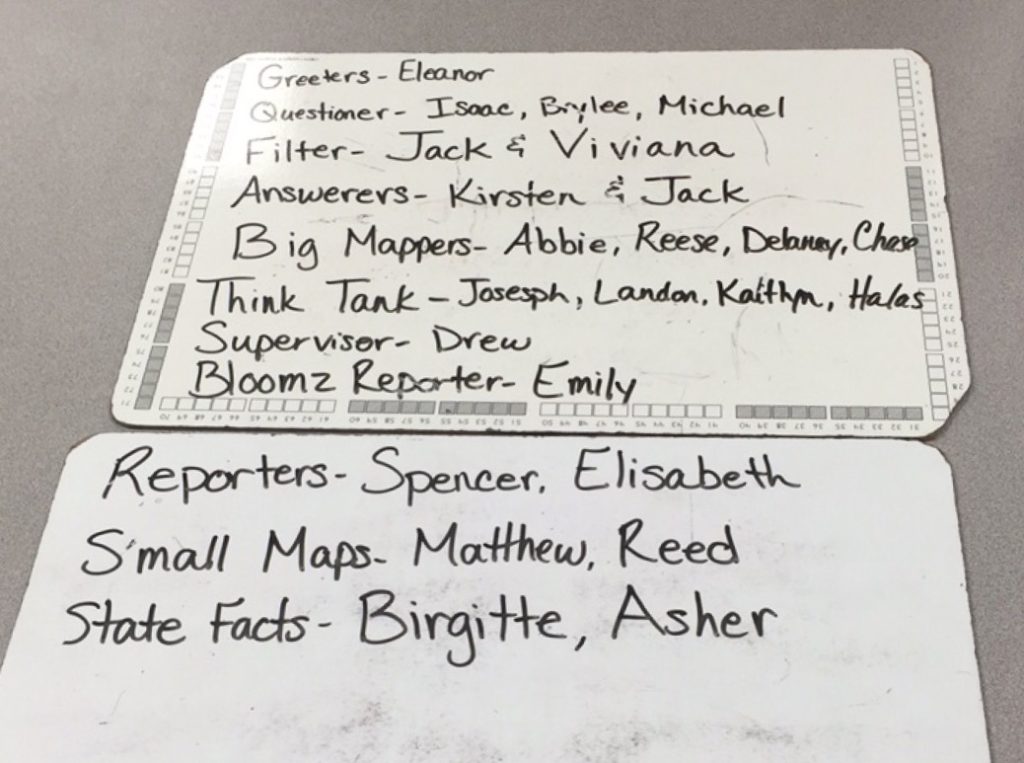 Greeters- Eleanor
Questioner- Isaac, Brylee, Michael
Filter- Jack & Viviana
Answerers- Kirsten & Jack
Big Mappers- Abbie, Reese, Delaney, Chase
Think Tank- Josesph, Landon, Kaithyn, Halas
Supervisor- Drew
Bloomz Reporter- Emily
Reporters- Spencer, Elisabeth
Small Maps- Matthew, Reed
State Facts- Birgitte, Asher